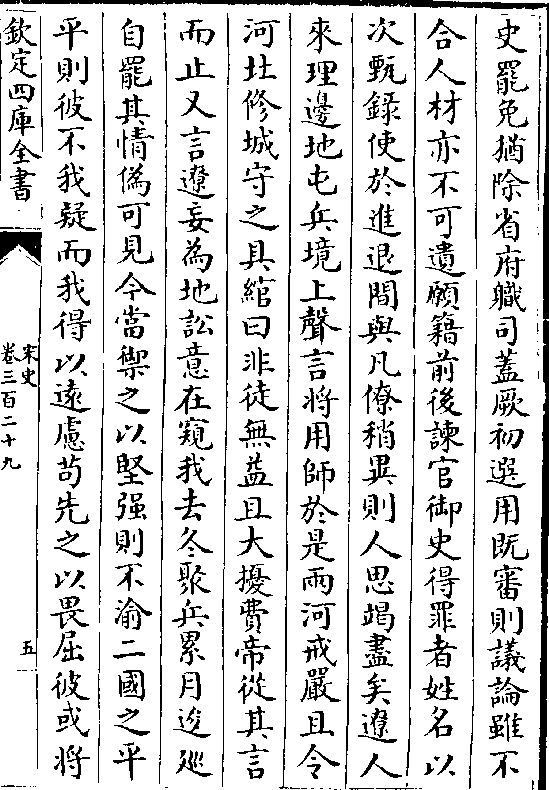 史罷免猶除省府職司蓋厥初選用既審則議論雖不
合人材亦不可遺願籍前後諫官御史得罪者姓名以
次甄錄使於進退間與凡僚稍異則人思竭盡矣遼人
來理邊地屯兵境上聲言將用師於是兩河戒嚴且令
河北修城守之具綰曰非徒無益且大擾費帝從其言
而止又言遼妄為地訟意在窺我去冬聚兵累月逡廵
自罷其情偽可見今當禦之以堅强則不渝二國之平
平則彼不我疑而我得以遠慮苟先之以畏屈彼或將
欽定四庫全書
宋史
卷三百二十九
五